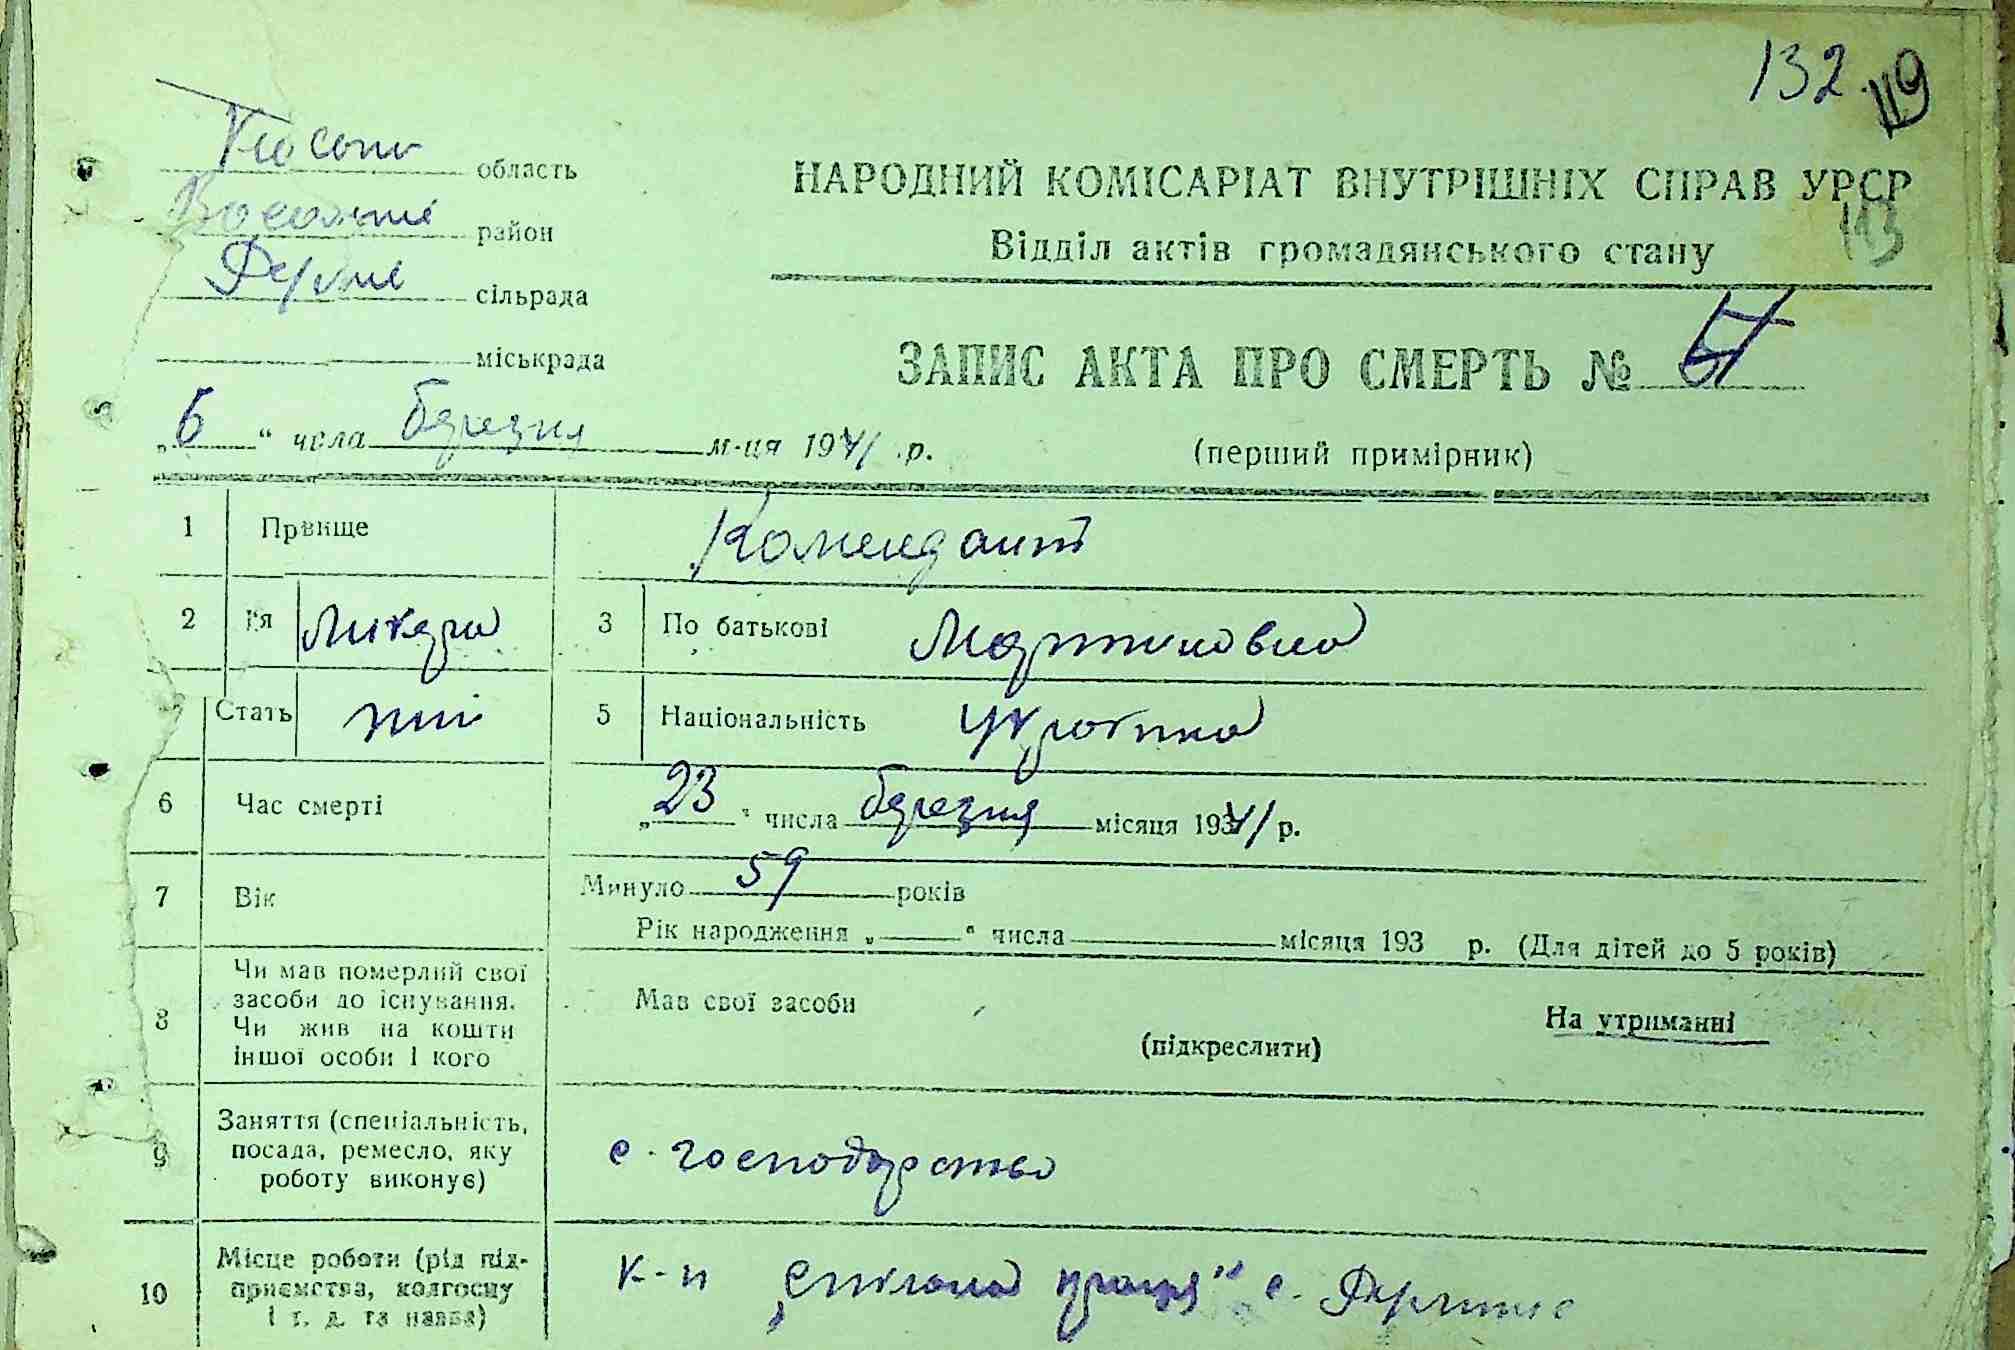 132. 119
область
НАРОДНИЙ КОМІСАРІАТ ВНУТРІШНІХ СПРАВ УРСР
район
113
Відділ актів громадянського стану
сільрада
міськрада
ЗАПИС АКТА ПРО СМЕРТЬ №
„6“ числа березня м-ця 1941 р.
(перший примірник)
1 Прізвище Комендант
2 І'я Ликера 3 По батькові Мартиновна
Стать 5 Національність Українка
6 Час смерті „23“ числа березня місяця 1941 р.
7 Вік Минуло 59 років
Рік народження „ “ числа місяця 193 р. (Для дітей до 5 років)
8 Чи мав померлий свої
засоби до існування.
Чи жив на кошти
іншої особи і кого
Мав свої засоби
(підкреслити)
На утриманні
9 Заняття (спеціальність,
посада, ремесло, яку
роботу виконує)
с. господарство
10 Місце роботи (рід під-
приємства, колгоспу
і т. д. та назва)
к-п „Спільна праця“ с.